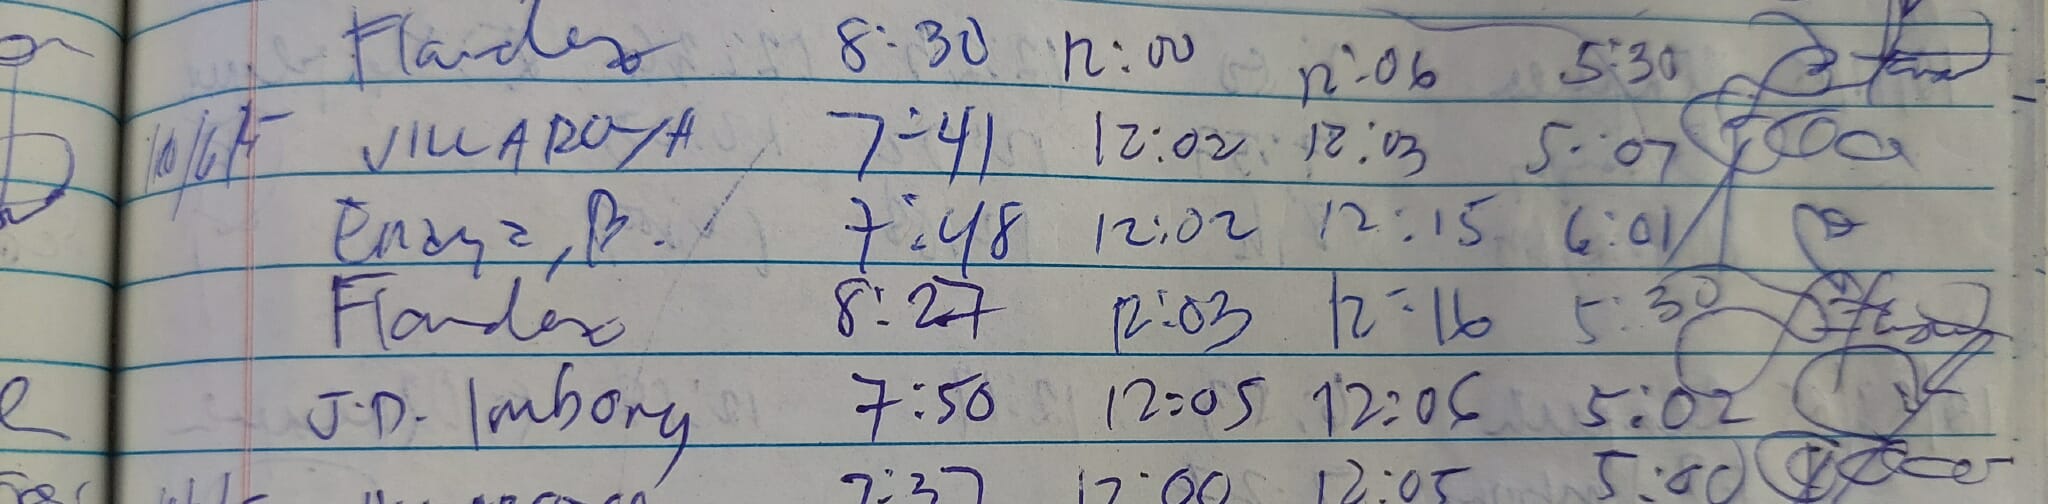 Flandez 8:30 12:00 12:06 5:30
VILLAROYA 7:41 12:02 12:03 5:07
B. 7:48 12:02 12:15 6:01
Flandez 8:27 12:03 12:16 5:30
J.D. Imbong 7:50 12:05 12:06 5:02
7:37 12:00 12:05 5:00